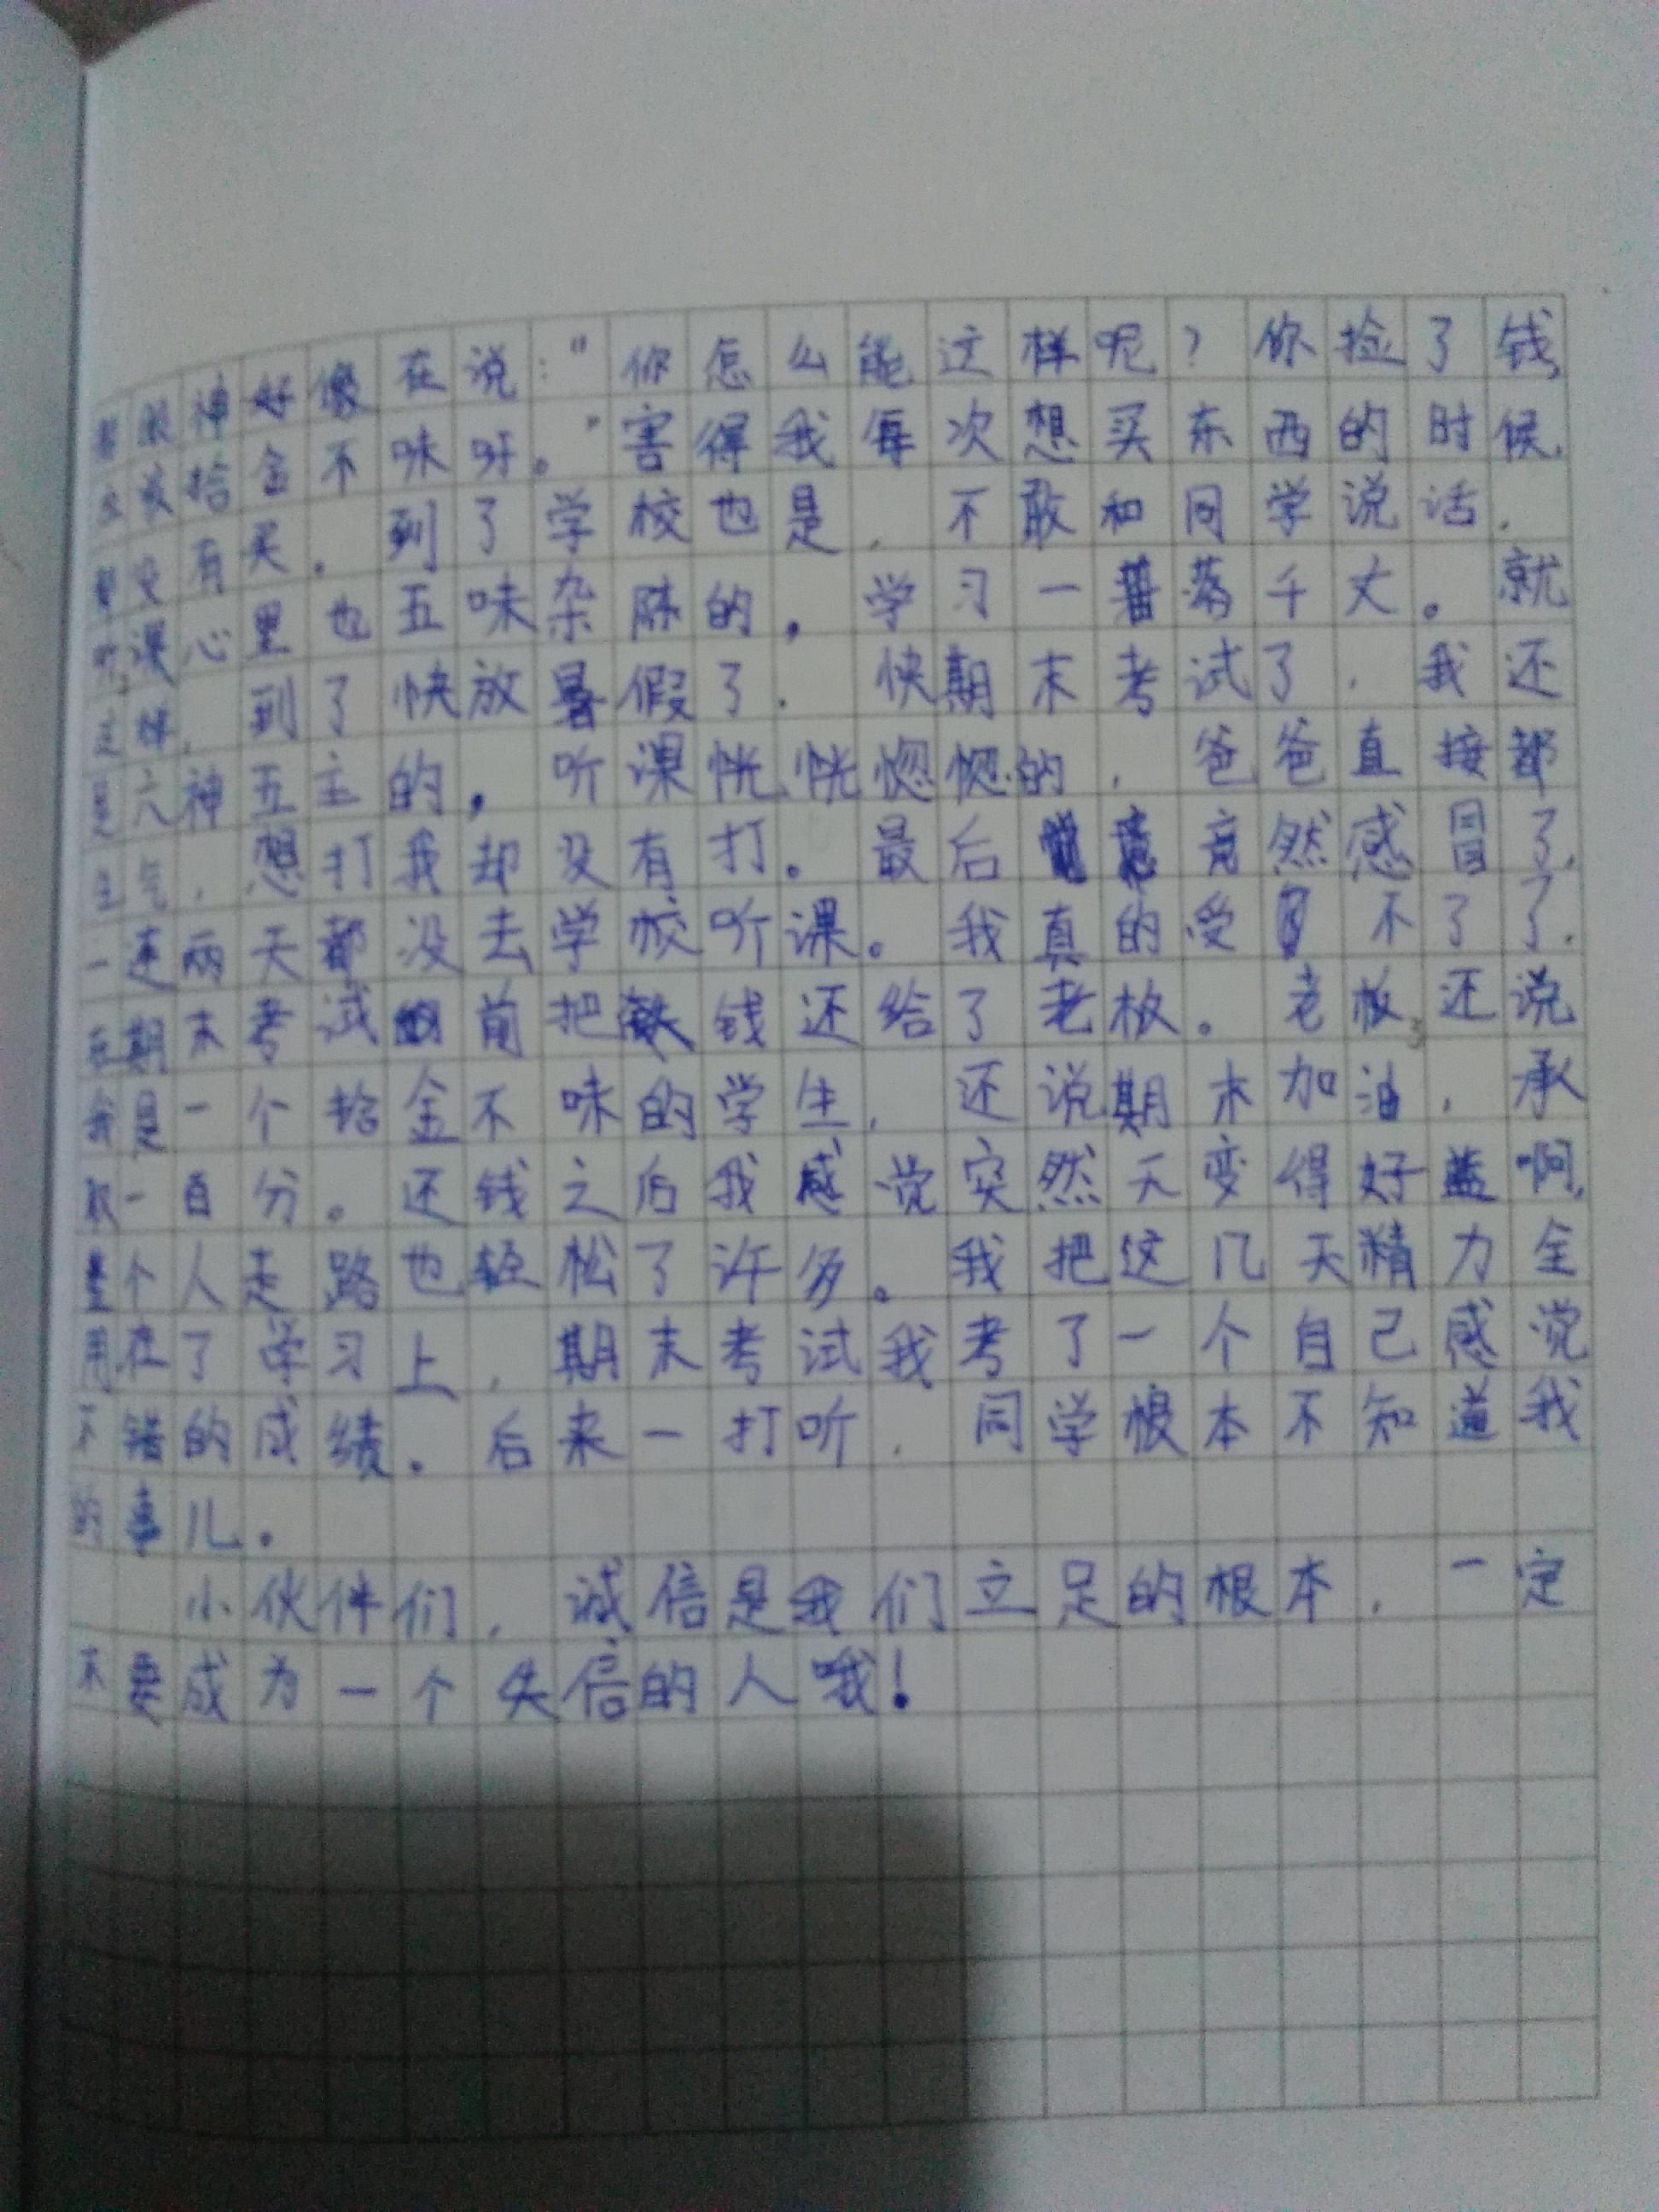 眼神好像在说:"你怎么能这样呢?你捡了钱,
应该拾金不昧呀。"害得我每次想买东西的时候,
都没有买.到了学校也是,不敢和同学说话,
听课心里也五味杂陈的,学习一落千丈。就
这样,到了快放暑假了,快期末考试了,我还
是六神五主的,听课恍恍惚惚的,爸爸直接都
生气,想打我却没有打。最后竟然感冒了,
一连两天都没去学校听课。我真的受不了了,
在期末考试前把钱还给了老板。老板还说
我是一个拾金不昧的学生,还说期末加油,承
取一百分。还钱之后我感觉突然天变得好蓝啊,
整个人走路也轻松了许多。我把这几天精力全
用在了学习上,期末考试我考了一个自己感觉
不错的成绩。后来一打听,同学根本不知道我
的事儿。
小伙伴们,诚信是我们立足的根本,一定
不要成为一个失信的人哦!